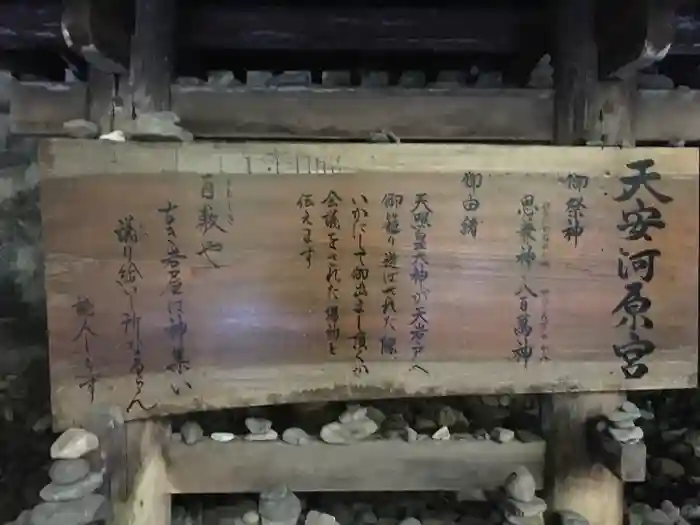 天安河原宮
御祭神
思兼神 八百萬神
御由緒
天照皇大神が天岩戸へ
御籠り遊ばされた際
いかにして御出まし頂くか
会議をされた場所と
伝えます
百敷や
ももしき
古き岩屋は神集い
議り給いし所なるらん
詠人しらず